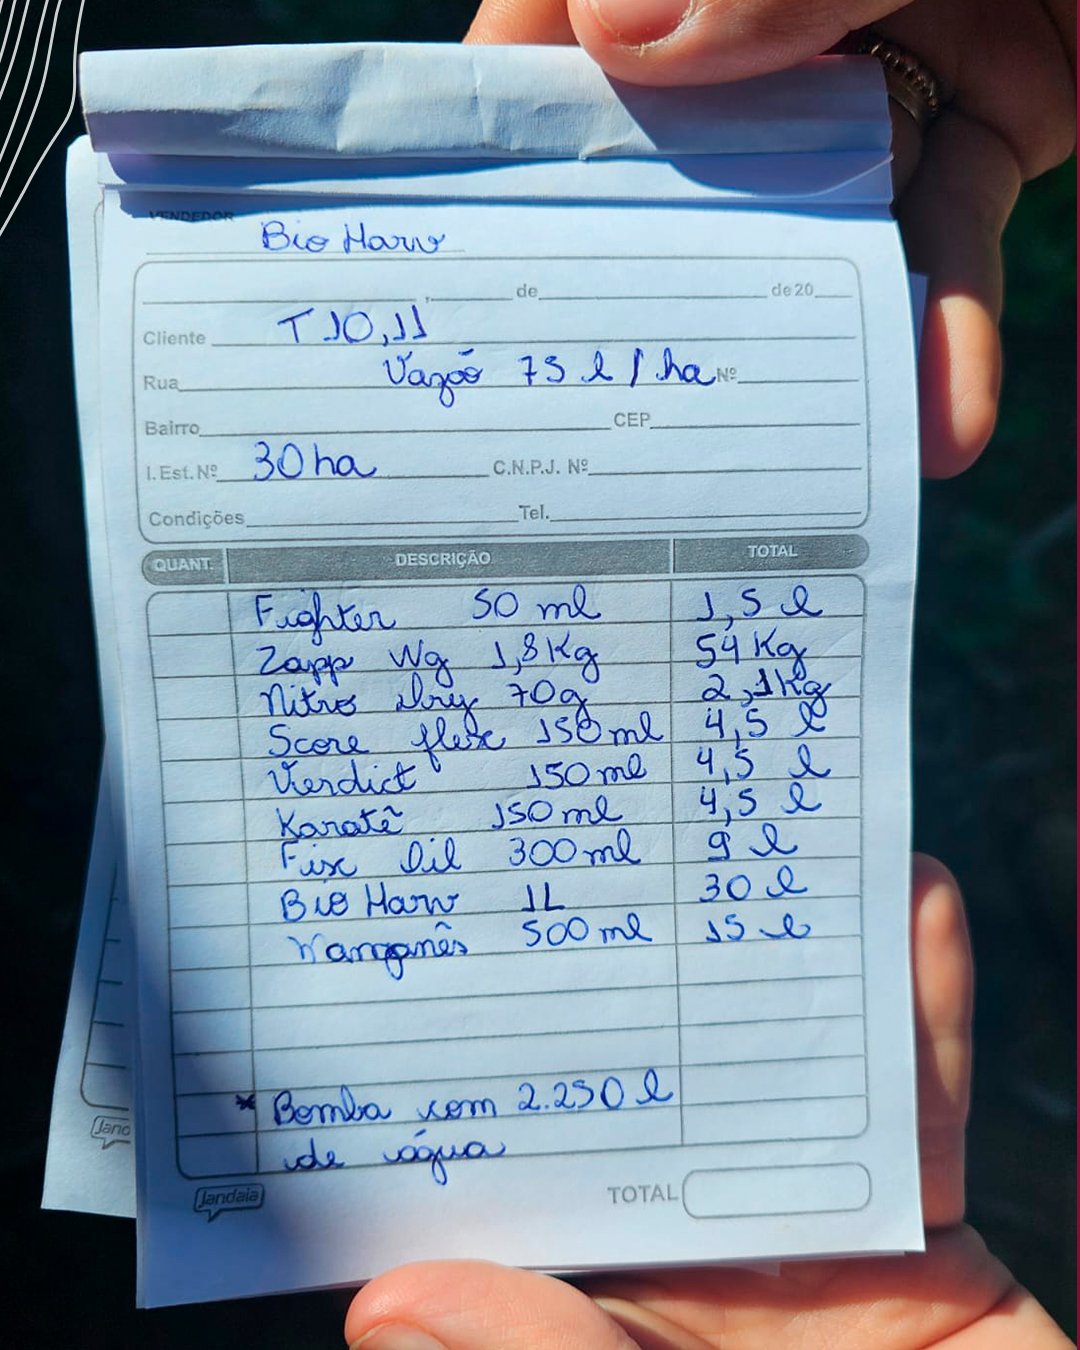 VENDEDOR
Bio Harv
, de de 20
Cliente T 10,11
Rua Vazão 75 l / ha Nº
Bairro CEP
I. Est. Nº 30 ha C.N.P.J. Nº
Condições Tel.
QUANT. DESCRIÇÃO TOTAL
Fighter 50 ml 1,5 l
Zapp Wg 1,8 Kg 54 Kg
Nitro dry 70g 2,1 Kg
Score flex 150 ml 4,5 l
Verdict 150 ml 4,5 l
Karatê 150 ml 4,5 l
Fix Oil 300 ml 9 l
Bio Harv 1L 30 l
Manganês 500 ml 15 l
* Bomba com 2.250 l
de água
Jandaia TOTAL
Jand